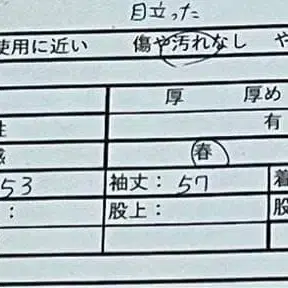 目立った
使用に近い 傷や汚れなし や
厚 厚め
性 有
感 春
53 袖丈：57 着
： 股上： 股